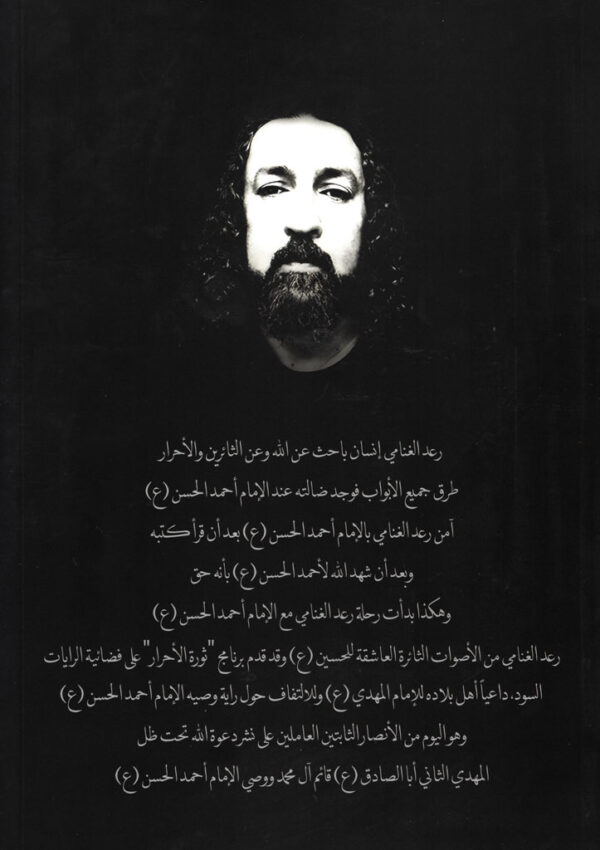 رعد الغنامي إنسان باحث عن الله وعن الثائرين والأحرار
طرق جميع الأبواب فوجد ضالته عند الإمام أحمد الحسن (ع)
آمن رعد الغنامي بالإمام أحمد الحسن (ع) بعد أن قرأ كتبه
وبعد أن شهد الله لأحمد الحسن (ع) بأنه حق
وهكذا بدأت رحلة رعد الغنامي مع الإمام أحمد الحسن (ع)
رعد الغنامي من الأصوات الثائرة العاشقة للحسين (ع) وقد قدم برنامج "ثورة الأحرار" على فضائية الرايات
السود، داعياً أهل بلاده للإمام المهدي (ع) وللالتفاف حول راية وصيه الإمام أحمد الحسن (ع)
وهو اليوم من الأنصار الثابتين العاملين على نشر دعوة الله تحت ظل
المهدي الثاني أبا الصادق (ع) قائم آل محمد ووصي الإمام أحمد الحسن (ع)